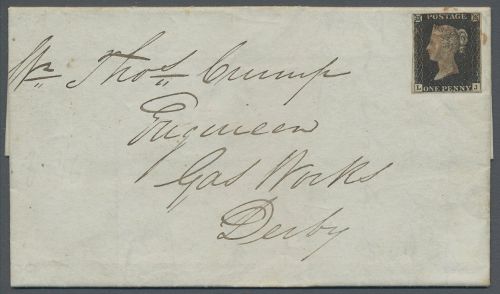 POSTAGE
L J
ONE PENNY
Mr Thos Crump
Engineer
Gas Works
Derby